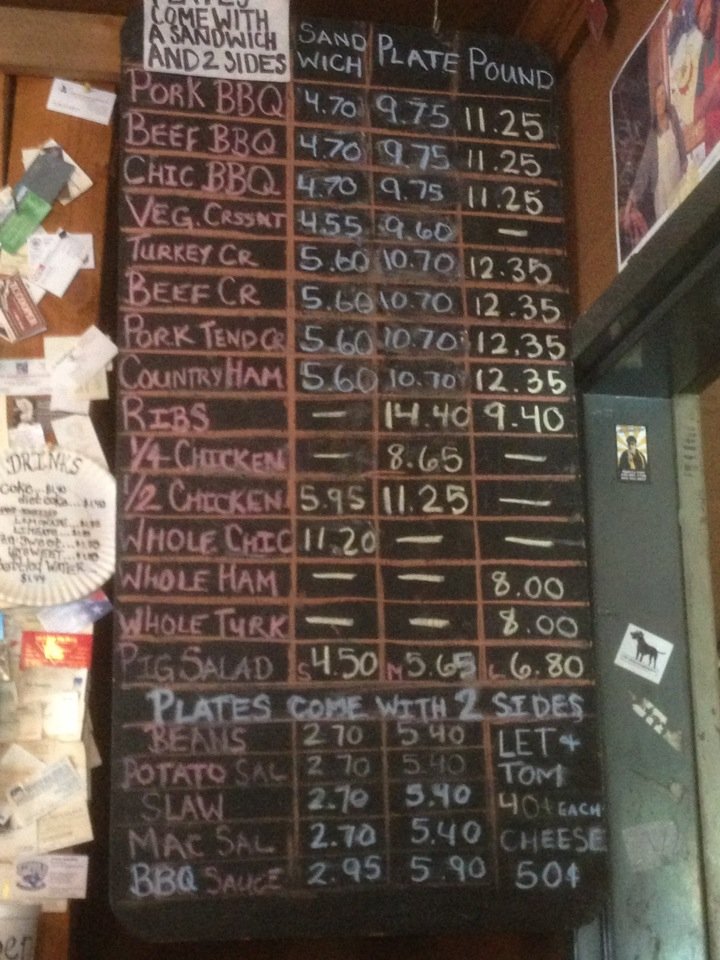 PLATES
COME WITH
A SANDWICH
AND 2 SIDES
SAND WICH PLATE POUND
PORK BBQ 4.70 9.75 11.25
BEEF BBQ 4.70 9.75 11.25
CHIC BBQ 4.70 9.75 11.25
VEG. CRSSNT 4.55 9.60 —
TURKEY CR 5.60 10.70 12.35
BEEF CR 5.60 10.70 12.35
PORK TEND CR 5.60 10.70 12.35
COUNTRY HAM 5.60 10.70 12.35
RIBS — 14.40 9.40
1/4 CHICKEN — 8.65 —
1/2 CHICKEN 5.95 11.25 —
WHOLE CHIC 11.20 — —
WHOLE HAM — — 8.00
WHOLE TURK — — 8.00
PIG SALAD S 4.50 M 5.65 L 6.80
PLATES COME WITH 2 SIDES
BEANS 2.70 5.40 LET +
POTATO SAL 2.70 5.40 TOM
SLAW 2.70 5.40 40¢ EACH
MAC SAL 2.70 5.40 CHEESE
BBQ SAUCE 2.95 5.90 50¢
DRINKS
coke
diet coke
LEMONADE
SWEET
UNSWEET
WATER